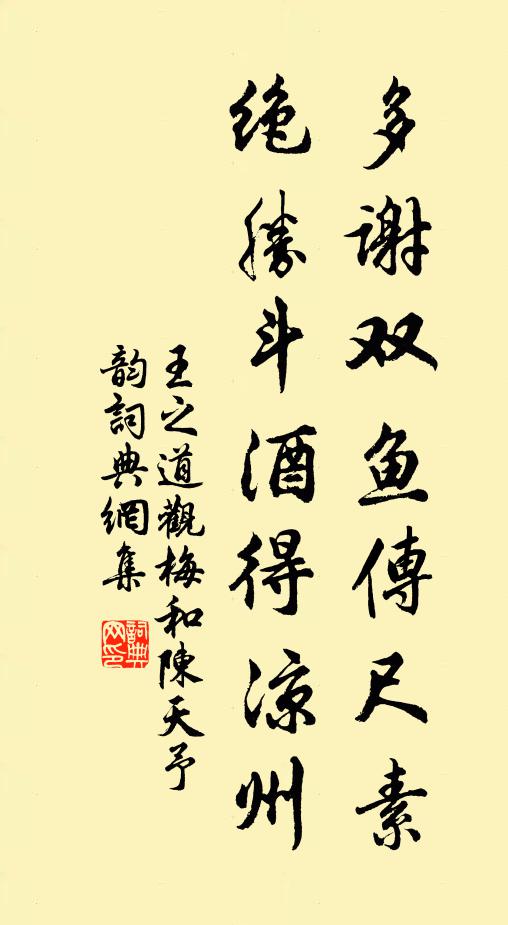 多谢双鱼傳尺素
绝勝斗酒得凉州
王之道觀梅和陳天予
韵詞典網集
詞典网印